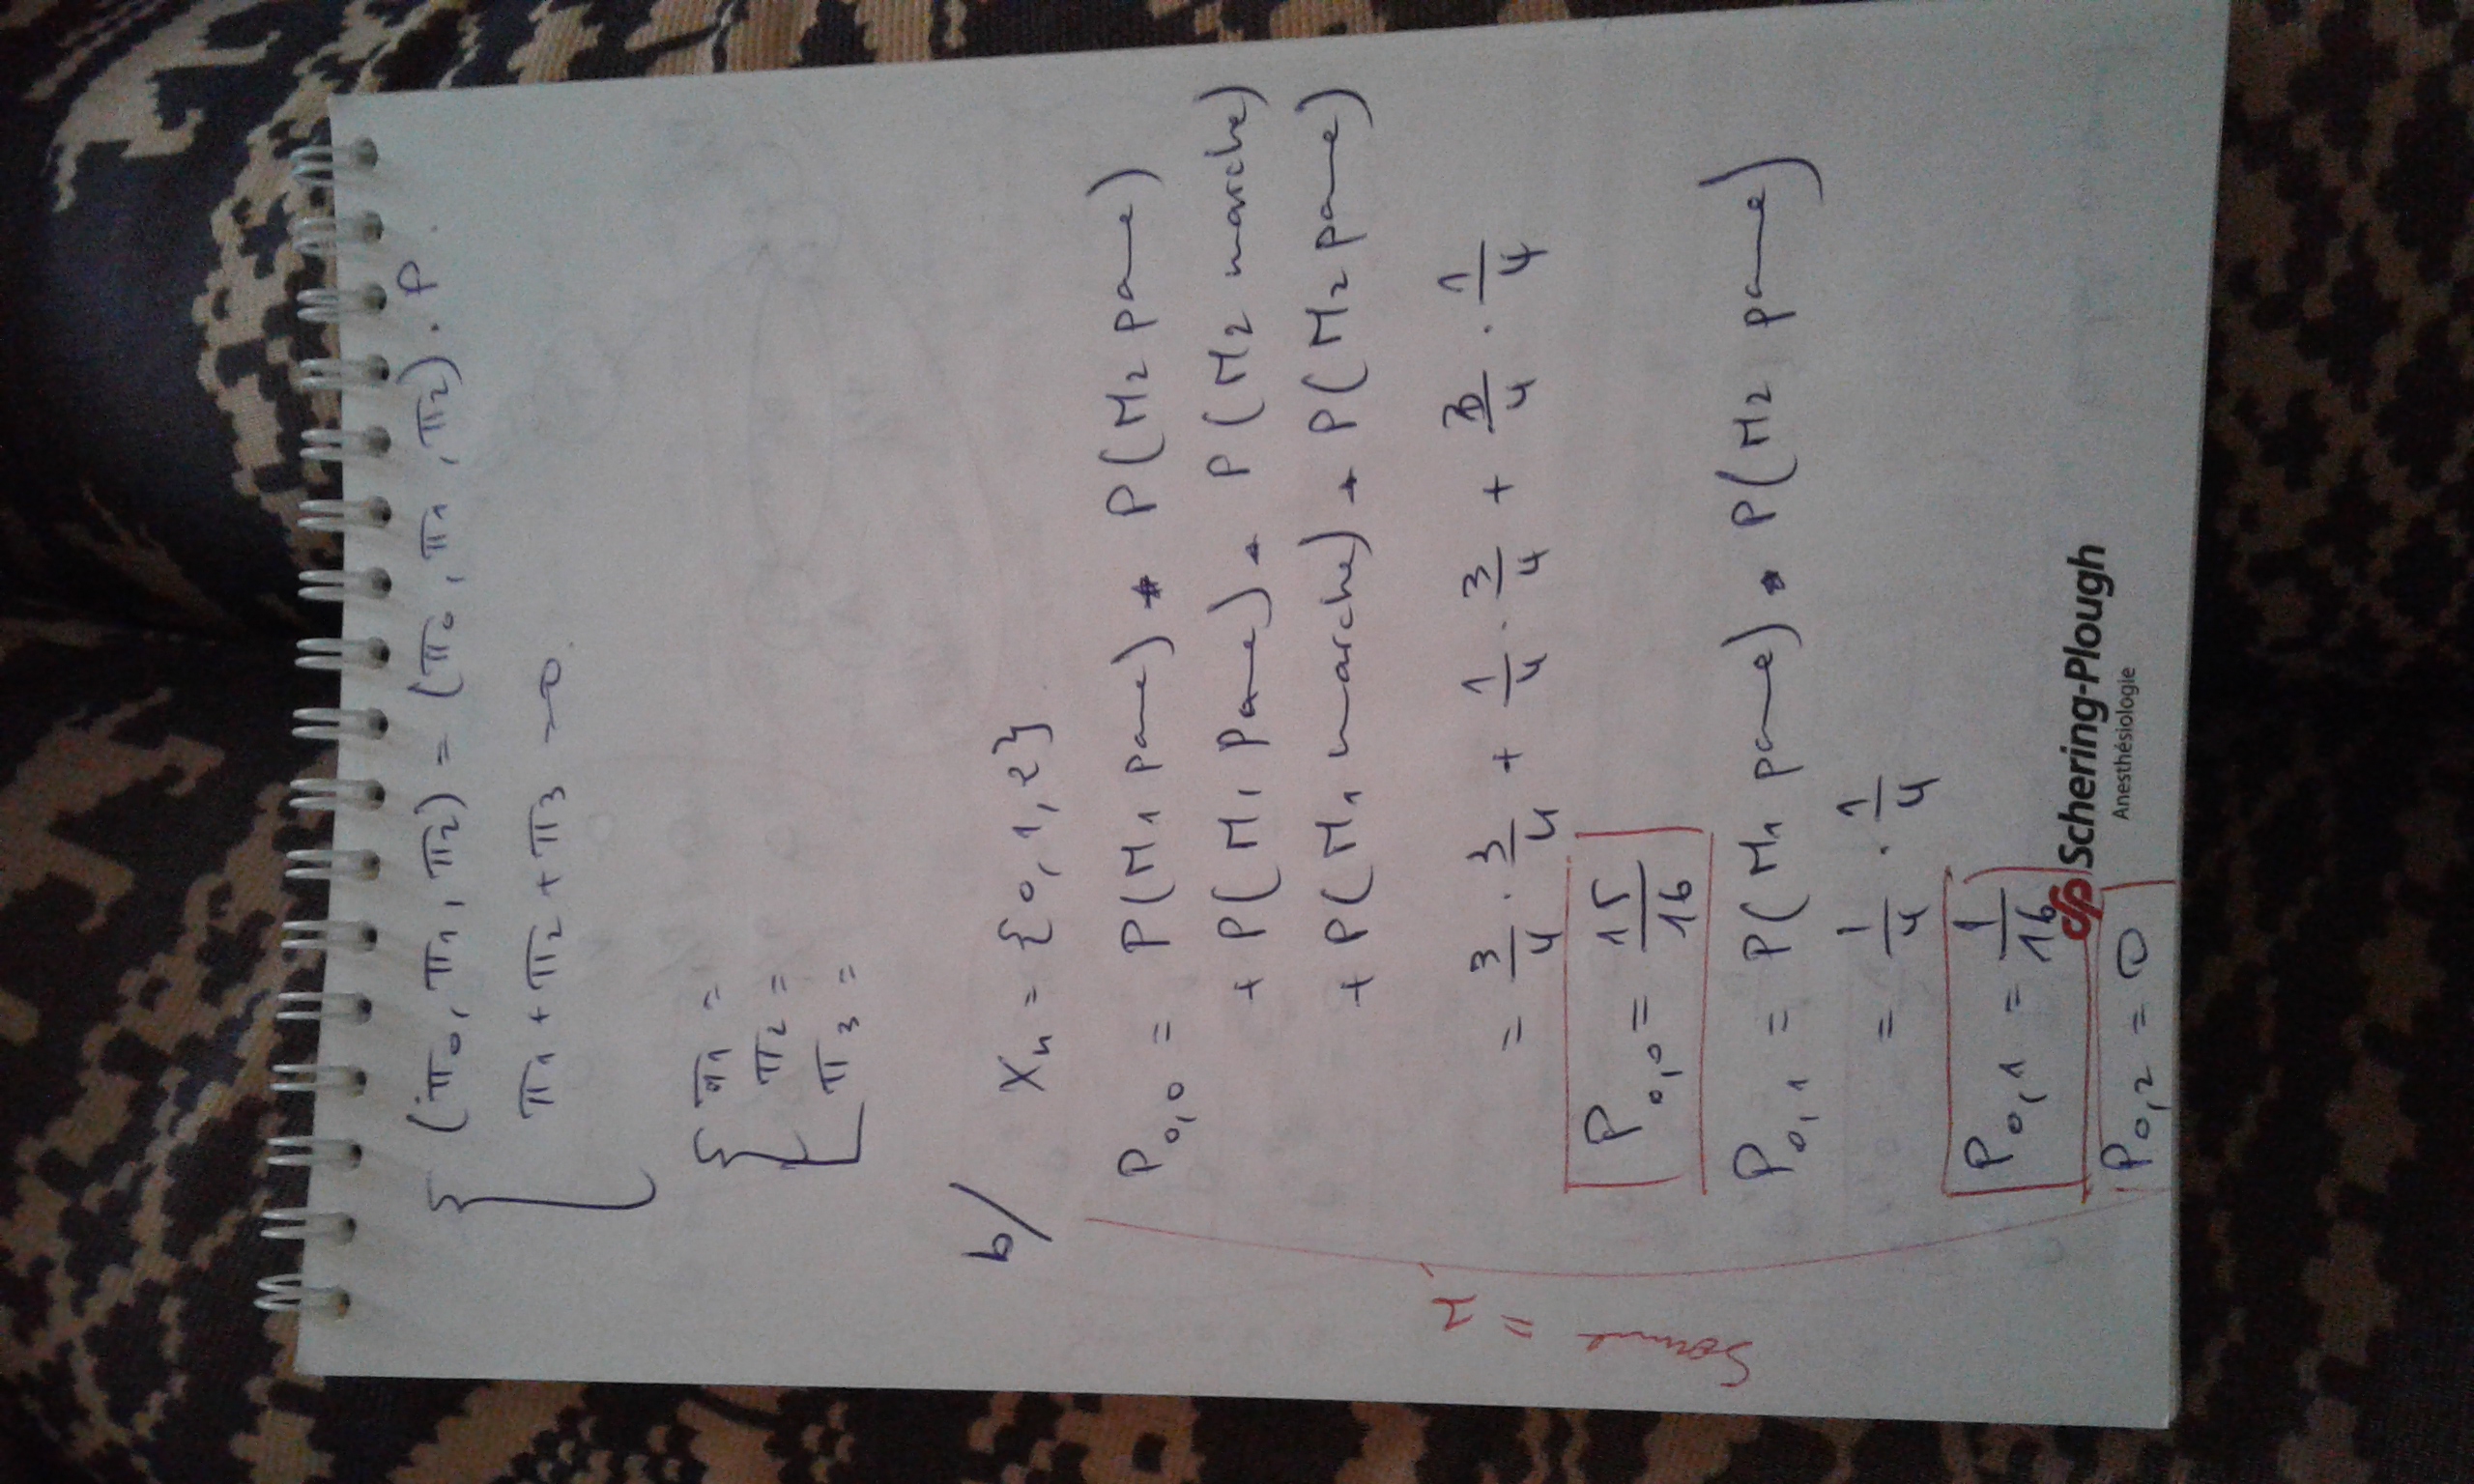 (π0, π1, π2) = (π0, π1, π2). P.
π1 + π2 + π3 = 0.
π1 =
π2 =
π3 =
b/ Xn = {0, 1, 2}.
P0,0 = P(M1 pane) * P(M2 pane)
+ P(M1 Pane) * P(M2 marche)
+ P(M1 marche) * P(M2 pane)
= 3/4 . 3/4 + 1/4 . 3/4 + 3/4 . 1/4
Somme = 1
P0,0 = 15/16
P0,1 = P(M1 pane) * P(M2 pane)
= 1/4 . 1/4
P0,1 = 1/16
Schering-Plough
Anesthésiologie
P0,2 = 0